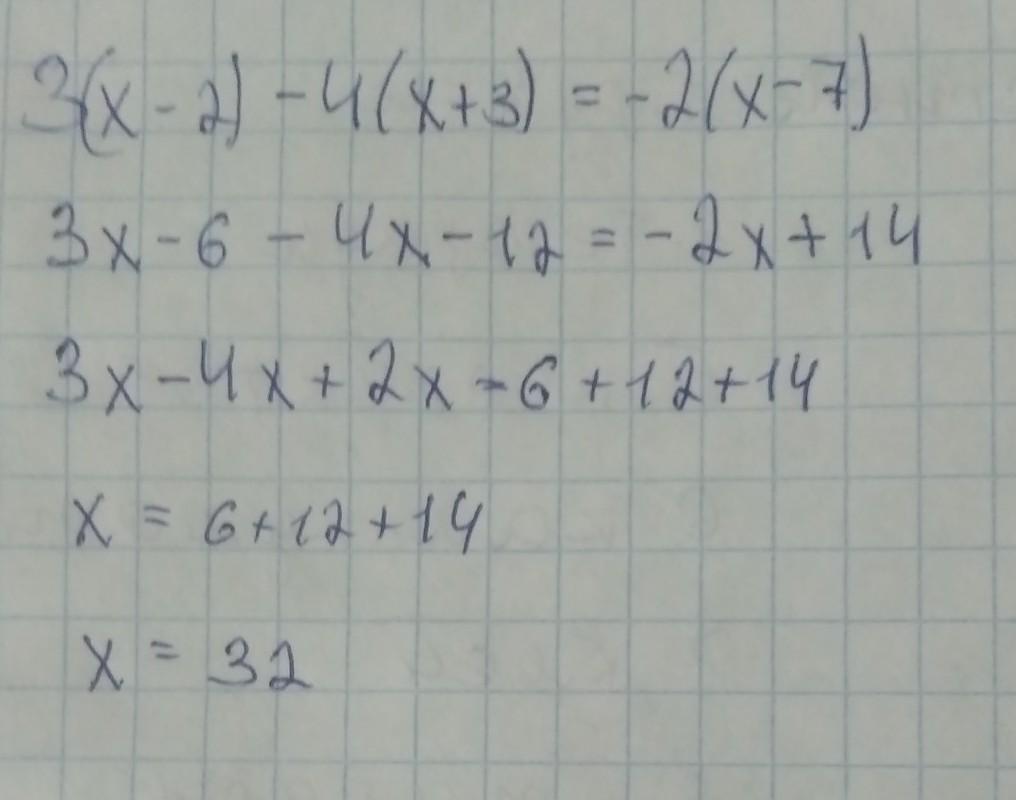 3(x-2)-4(x+3)=-2(x-7)
3x-6-4x-12=-2x+14
3x-4x+2x-6+12+14
x=6+12+14
x=32